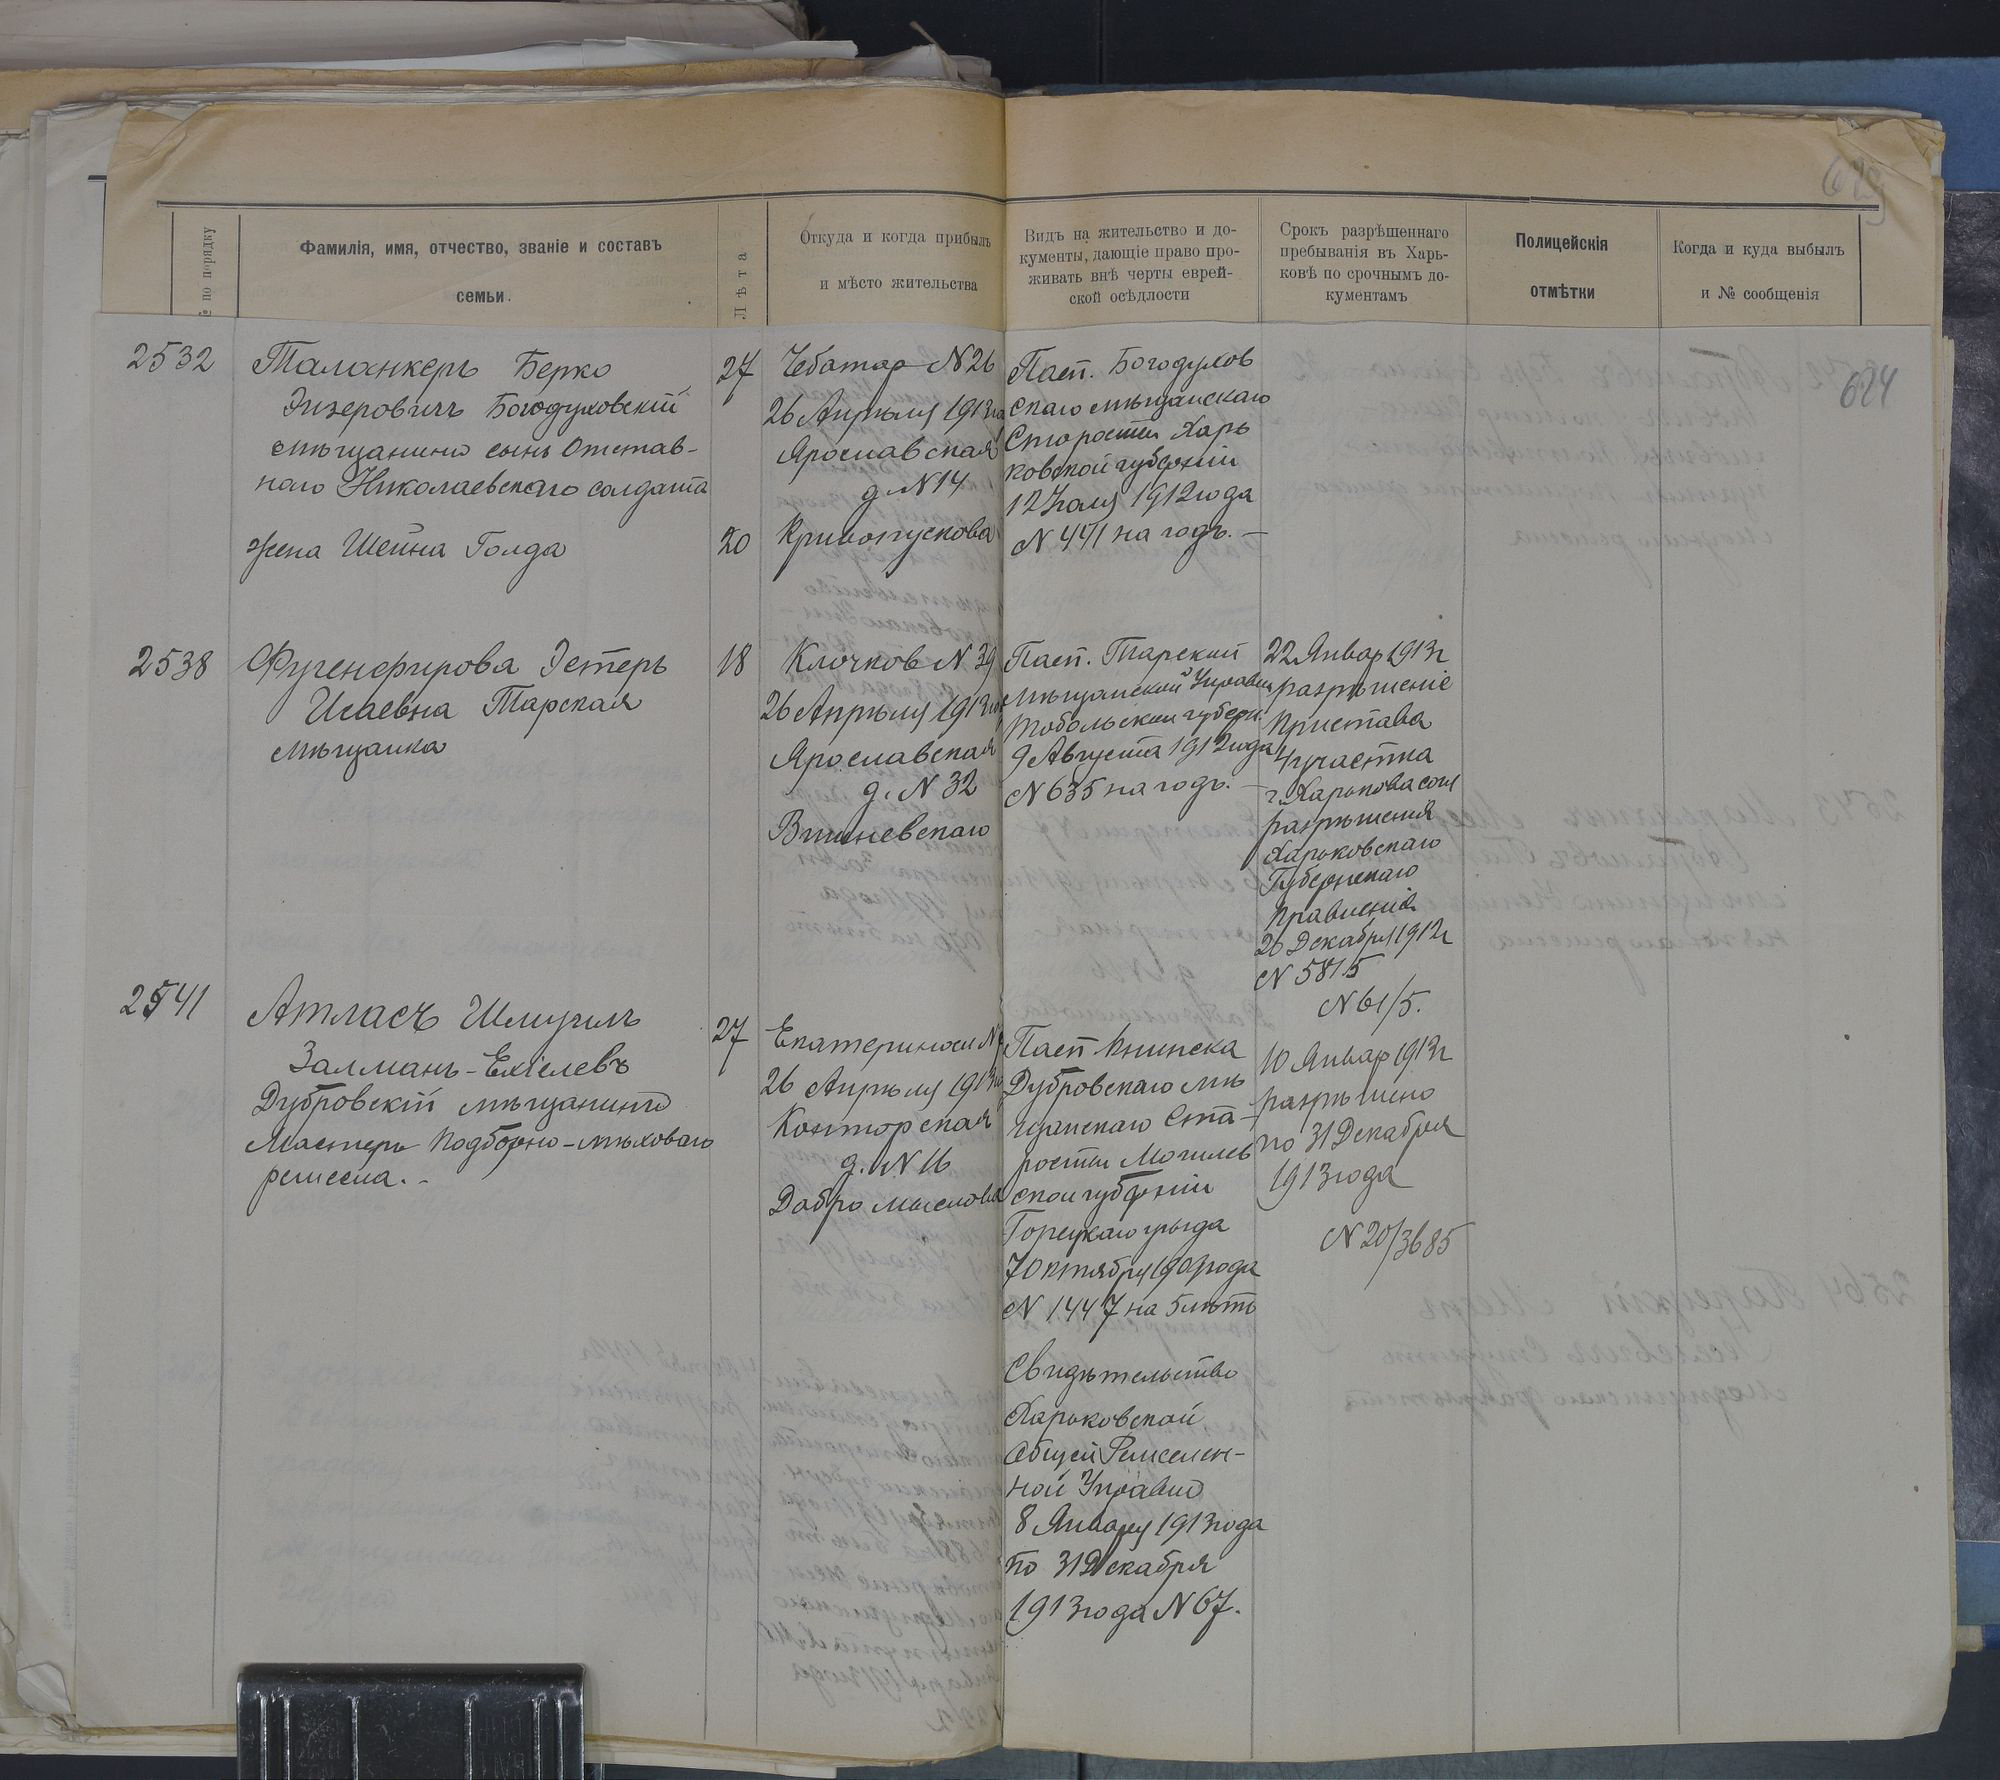 629
№ по порядку
Фамилія, имя, отчество, званіе и составъ
семьи.
Лѣта
Откуда и когда прибылъ
и мѣсто жительства
Видъ на жительство и до-
кументы, дающіе право про-
живать внѣ черты еврей-
ской осѣдлости
Срокъ разрѣшеннаго
пребыванія въ Харь-
ковѣ по срочнымъ до-
кументамъ
Полицейскія
отмѣтки
Когда и куда выбылъ
и № сообщенія
624
2532
Таланкеръ Берко
Эизеровичъ Богодуховскій
мѣщанинъ сынъ Отстав-
наго Николаевскаго солдата
жена Шейна Голда
27
20
Чебатар N 26
26 Апрѣля 1913го
Ярославская
д. N 14
Кривопускова
Пасп. Богодухов
скаго мѣщанскаго
Старосты Харь
ковской губерніи
12 Іюля 1912 года
N 441 на годъ. —
2538
Фугенфирова Эстеръ
Исаевна Тарская
мѣщанка
18
Клочков N 39
26 Апрѣля 1913го
Ярославская
д. N 32
Вишневскаго
Пасп. Тарской
мѣщанской Управы
Тобольской губерн.
9 Августа 1912 года
N 635 на годъ. —
22 Январ 1913г
разрѣшеніе
Пристава
4 участка
г. Харькова согл
разрѣшенія
Харьковскаго
Губернскаго
Правленія
26 Декабря 1912г
N 5815
N 61/5.
2541
Атласъ Шмуилъ
Залманъ-Ехіелевъ
Дубровскій мѣщанинъ
Мастеръ Подборно-мѣховаго
ремесла. -
27
Екатериносл N
26 Апрѣля 1913го
Конторская
д. N 16
Добромыслова
Пасп. Книжка
Дубровскаго мѣ
щанскаго Ста-
росты Могилев
ской губерніи
Горецкаго уѣзда
7 Октября 1909 года
N 1447 на 5 лѣтъ
Свидѣтельство
Харьковской
Общей Ремеслен-
ной Управы
8 Января 1913 года
по 31 Декабря
1913 года N 67.
10 Январ 1913г
разрѣшено
по 31 Декабря
1913 года
N 20/3685